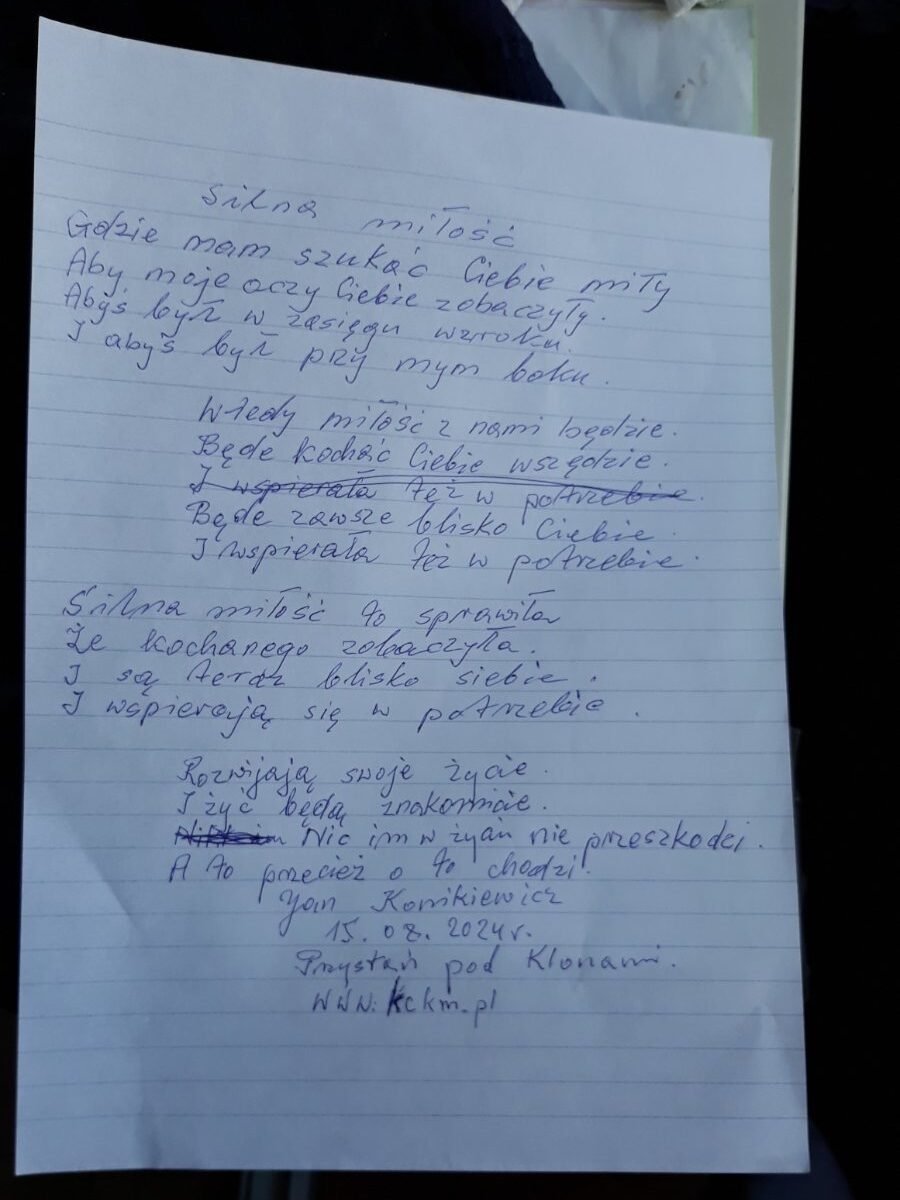 Silna miłość
Gdzie mam szukać Ciebie miły
Aby moje oczy Ciebie zobaczyły.
Abyś był w zasięgu wzroku.
I abyś był przy mym boku.
Wtedy miłość z nami będzie.
Będe kochać Ciebie wszędzie.
I wspierała też w potrzebie.
Będe zawsze blisko Ciebie.
I wspierała też w potrzebie.
Silna miłość to sprawiła
Że kochanego zobaczyła.
I są teraz blisko siebie.
I wspierają się w potrzebie.
Rozwijają swoje życie.
I żyć będą znakomicie.
Nic im w życiu nie przeszkodzi.
A to przecież o to chodzi.
Jan Konikiewicz
15.08.2024r.
Przystań pod Klonami.
www.kckm.pl